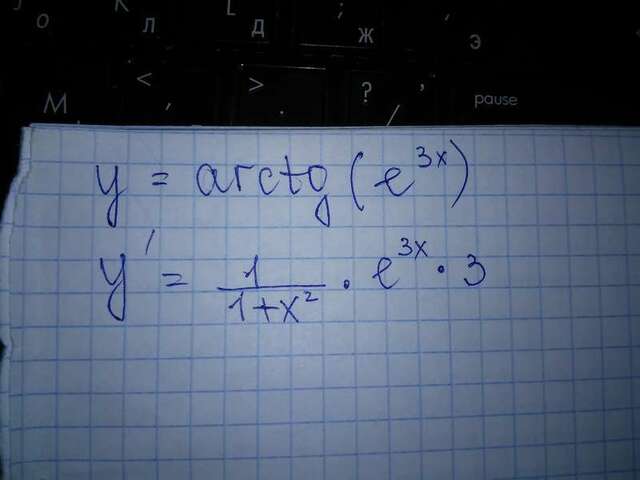 K L ; "
О Л Д Ж Э
M < , > . ? / , pause
y = arctg(e^{3x})
y' = \frac{1}{1+x^2} · e^{3x} · 3